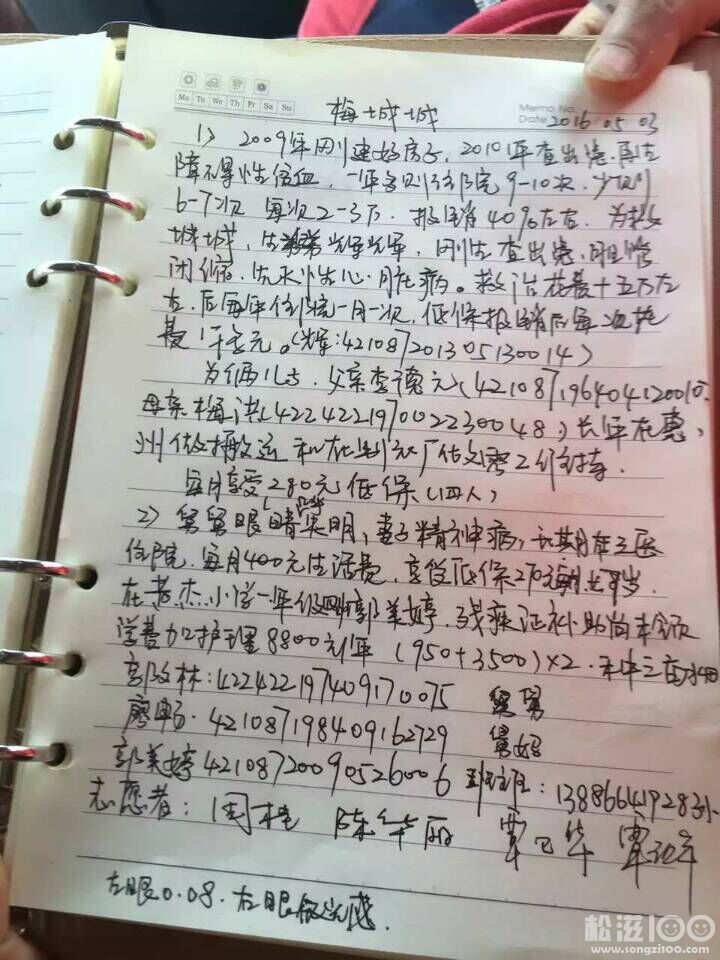 Mo Tu We Th Fr Sa Su
Memo No.
梅城城 Date 2016 05 03
1) 2009年刚建好房子，2010年查出患再生
障碍性贫血，一年多则住院9-10次，少则
6-7次 每次2-3万．报销40%左右．为救
城城，生弟弟光辉，刚生查出患
闭缩．先天性心脏病。救治花费十五万左
右．后每年住院一月一次，低保报销后每次花
费1千多元。(辉:421087201305130014)
为俩儿子．父亲李德元(421087196404120010)．
母亲梅洪(422422197002230048)长年在惠
州做搬运和在制衣厂做
每月享受280元低保(四人)
2) 舅舅眼睛失明，妻子精神病，长期在三医
住院．每月400元生活费．享受低保270元
在小学一年级郭美婷．残疾证补助尚未领
学费加护理8800元/年 (950+3500)×2．
郭 林:422422197409170075 舅舅
廖畅．421087198409162729 舅妈
郭美婷 421087200905260006 班主任：
志愿者：周桂 陈华丽 覃 华 覃
左眼0.08．右眼 光感．
松滋100
www.songzi100.com